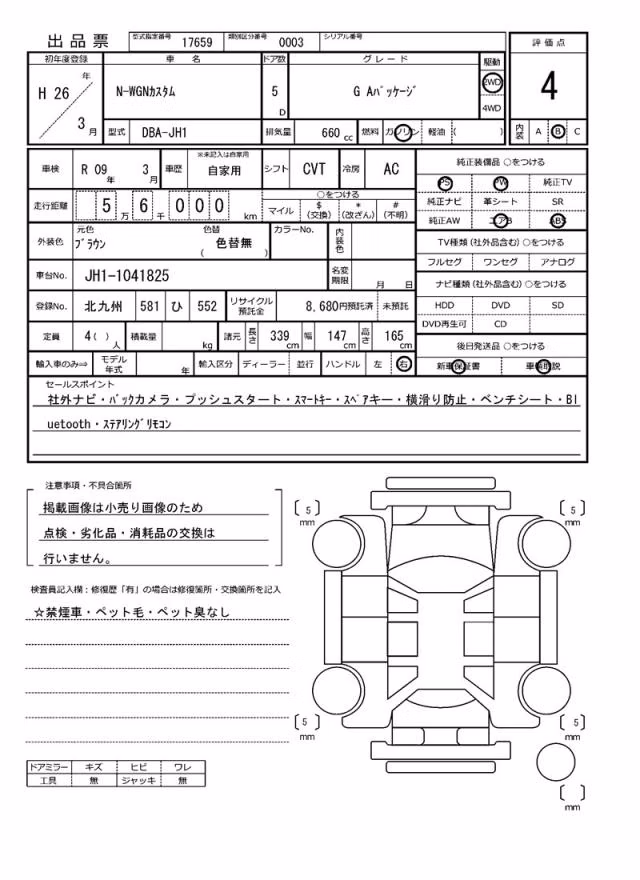 出品票 型式指定番号 17659 類別区分番号 0003 シリアル番号
初年度登録 車 名 ドア数 グレード 駆動 評価点
H 26 年 3 月 N-WGNカスタム 5 D G Aパッケージ 2WD 4WD 4
型式 DBA-JH1 排気量 660 cc 燃料 ガソリン 軽油 ( ) 内装 A B C
車検 R 09 年 3 月 車歴 ※未記入は自家用 自家用 シフト CVT 冷房 AC
走行距離 5 万 6 千 0 0 0 km ○をつける マイル $ (交換) * (改ざん) # (不明)
外装色 元色 ブラウン 色替 ( 色替無 ) カラーNo. 内装色
車台No. JH1-1041825 名変期限 月 日
登録No. 北九州 581 ひ 552 リサイクル預託金 8,680円預託済 未預託
定員 4( ) 人 積載量 kg 諸元 長さ 339 cm 幅 147 cm 高さ 165 cm
輸入車のみ⇨ モデル年式 年 輸入区分 ディーラー 並行 ハンドル 左 右
純正装備品 ○をつける
PS PW 純正TV
純正ナビ 革シート SR
純正AW エアB ABS
TV種類 (社外品含む) ○をつける
フルセグ ワンセグ アナログ
ナビ種類 (社外品含む) ○をつける
HDD DVD SD
DVD再生可 CD
後日発送品 ○をつける
新車保証書 車輌取説
セールスポイント
社外ナビ・バックカメラ・プッシュスタート・スマートキー・スペアキー・横滑り防止・ベンチシート・Bl
uetooth・ステアリングリモコン
注意事項・不具合箇所
掲載画像は小売り画像のため
点検・劣化品・消耗品の交換は
行いません。
検査員記入欄：修復歴「有」の場合は修復箇所・交換箇所を記入
☆禁煙車・ペット毛・ペット臭なし
ドアミラー キズ ヒビ ワレ
工具 無 ジャッキ 無
〔 5 〕 mm
〔 5 〕 mm
〔 5 〕 mm
〔 5 〕 mm
〔 〕 mm